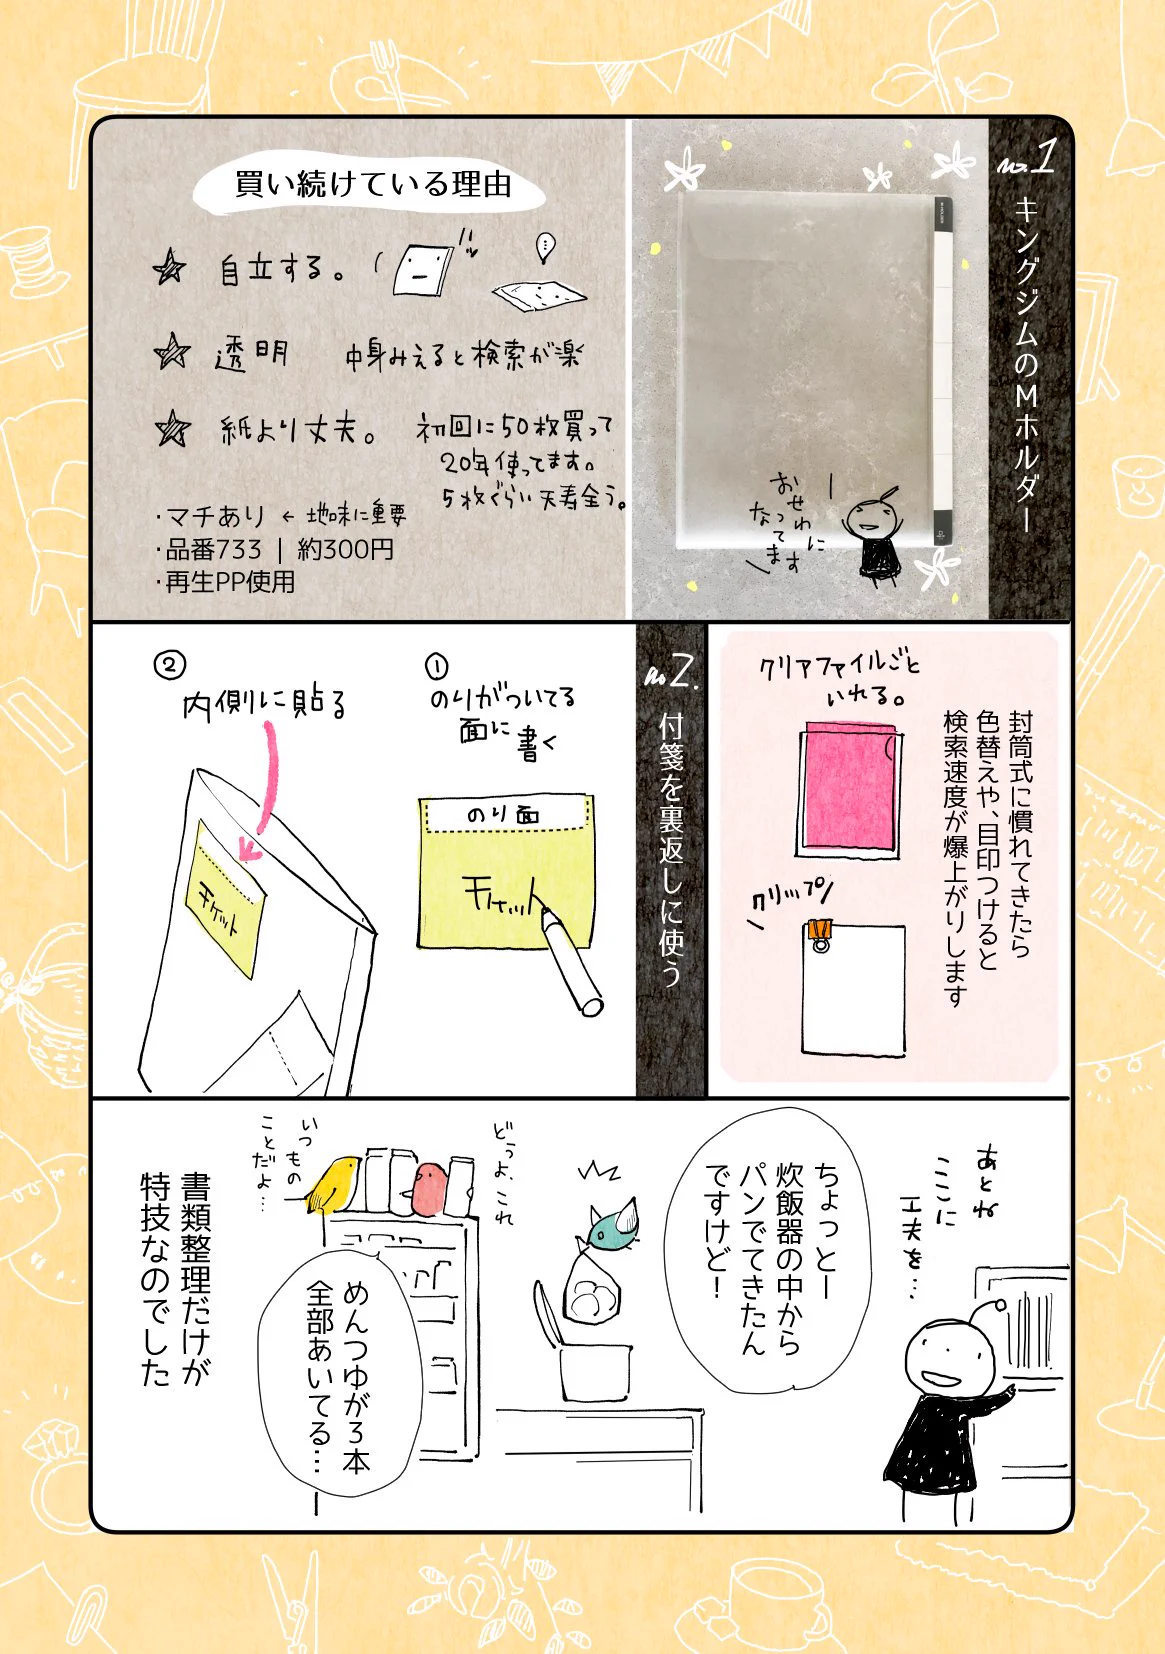 no.1
キングジムのMホルダー
おせわに
なってます
買い続けている理由
自立する。
透明 中身みえると検索が楽
紙より丈夫。 初回に50枚買って
20年使ってます。
5枚ぐらい天寿全う。
・マチあり ← 地味に重要
・品番733 | 約300円
・再生PP使用
封筒式に慣れてきたら
色替えや、目印つけると
検索速度が爆上がりします
クリアファイルごと
いれる。
クリップ
no2.
付箋を裏返しに使う
①
のりがついてる
面に
書く
のり面
チケット
②
内側に貼る
チケット
あとね
ここに
工夫を…
ちょっとー
炊飯器の中から
パンでてきたん
ですけど！
どうよ、これ
いつもの
ことだよ…
めんつゆが3本
全部あいてる…
書類整理だけが
特技なのでした